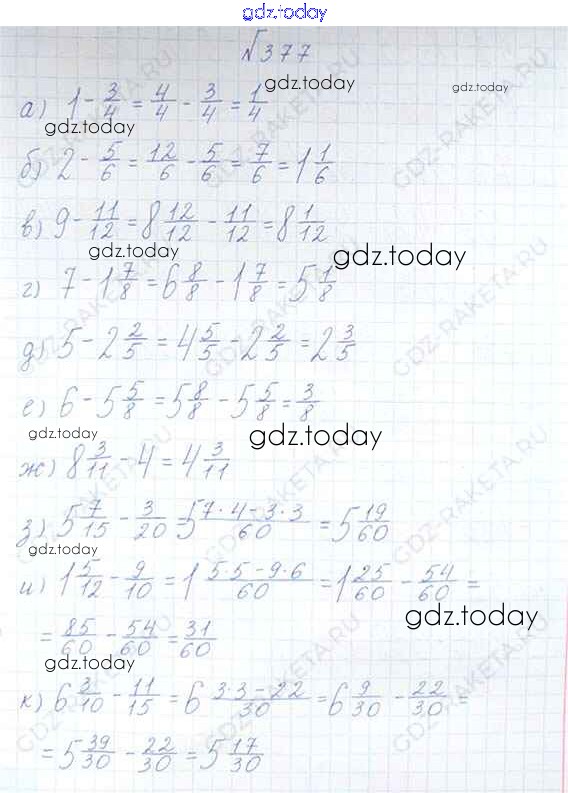 gdz.today
№377
gdz.today gdz.today
а) 1 - 3/4 = 4/4 - 3/4 = 1/4
gdz.today
б) 2 - 5/6 = 12/6 - 5/6 = 7/6 = 1 1/6
в) 9 - 11/12 = 8 12/12 - 11/12 = 8 1/12
gdz.today gdz.today
г) 7 - 1 7/8 = 6 8/8 - 1 7/8 = 5 1/8
д) 5 - 2 2/5 = 4 5/5 - 2 2/5 = 2 3/5
е) 6 - 5 5/8 = 5 8/8 - 5 5/8 = 3/8
gdz.today gdz.today
ж) 8 3/11 - 4 = 4 3/11
з) 5 7/15 - 3/20 = 5 (7·4-3·3)/60 = 5 19/60
gdz.today
и) 1 5/12 - 9/10 = 1 (5·5-9·6)/60 = 1 25/60 - 54/60 =
gdz.today
= 85/60 - 54/60 = 31/60
gdz.today
к) 6 3/10 - 11/15 = 6 (3·3-22)/30 = 6 9/30 - 22/30 =
= 5 39/30 - 22/30 = 5 17/30
gdz.today
GDZ-RAKETA.RU